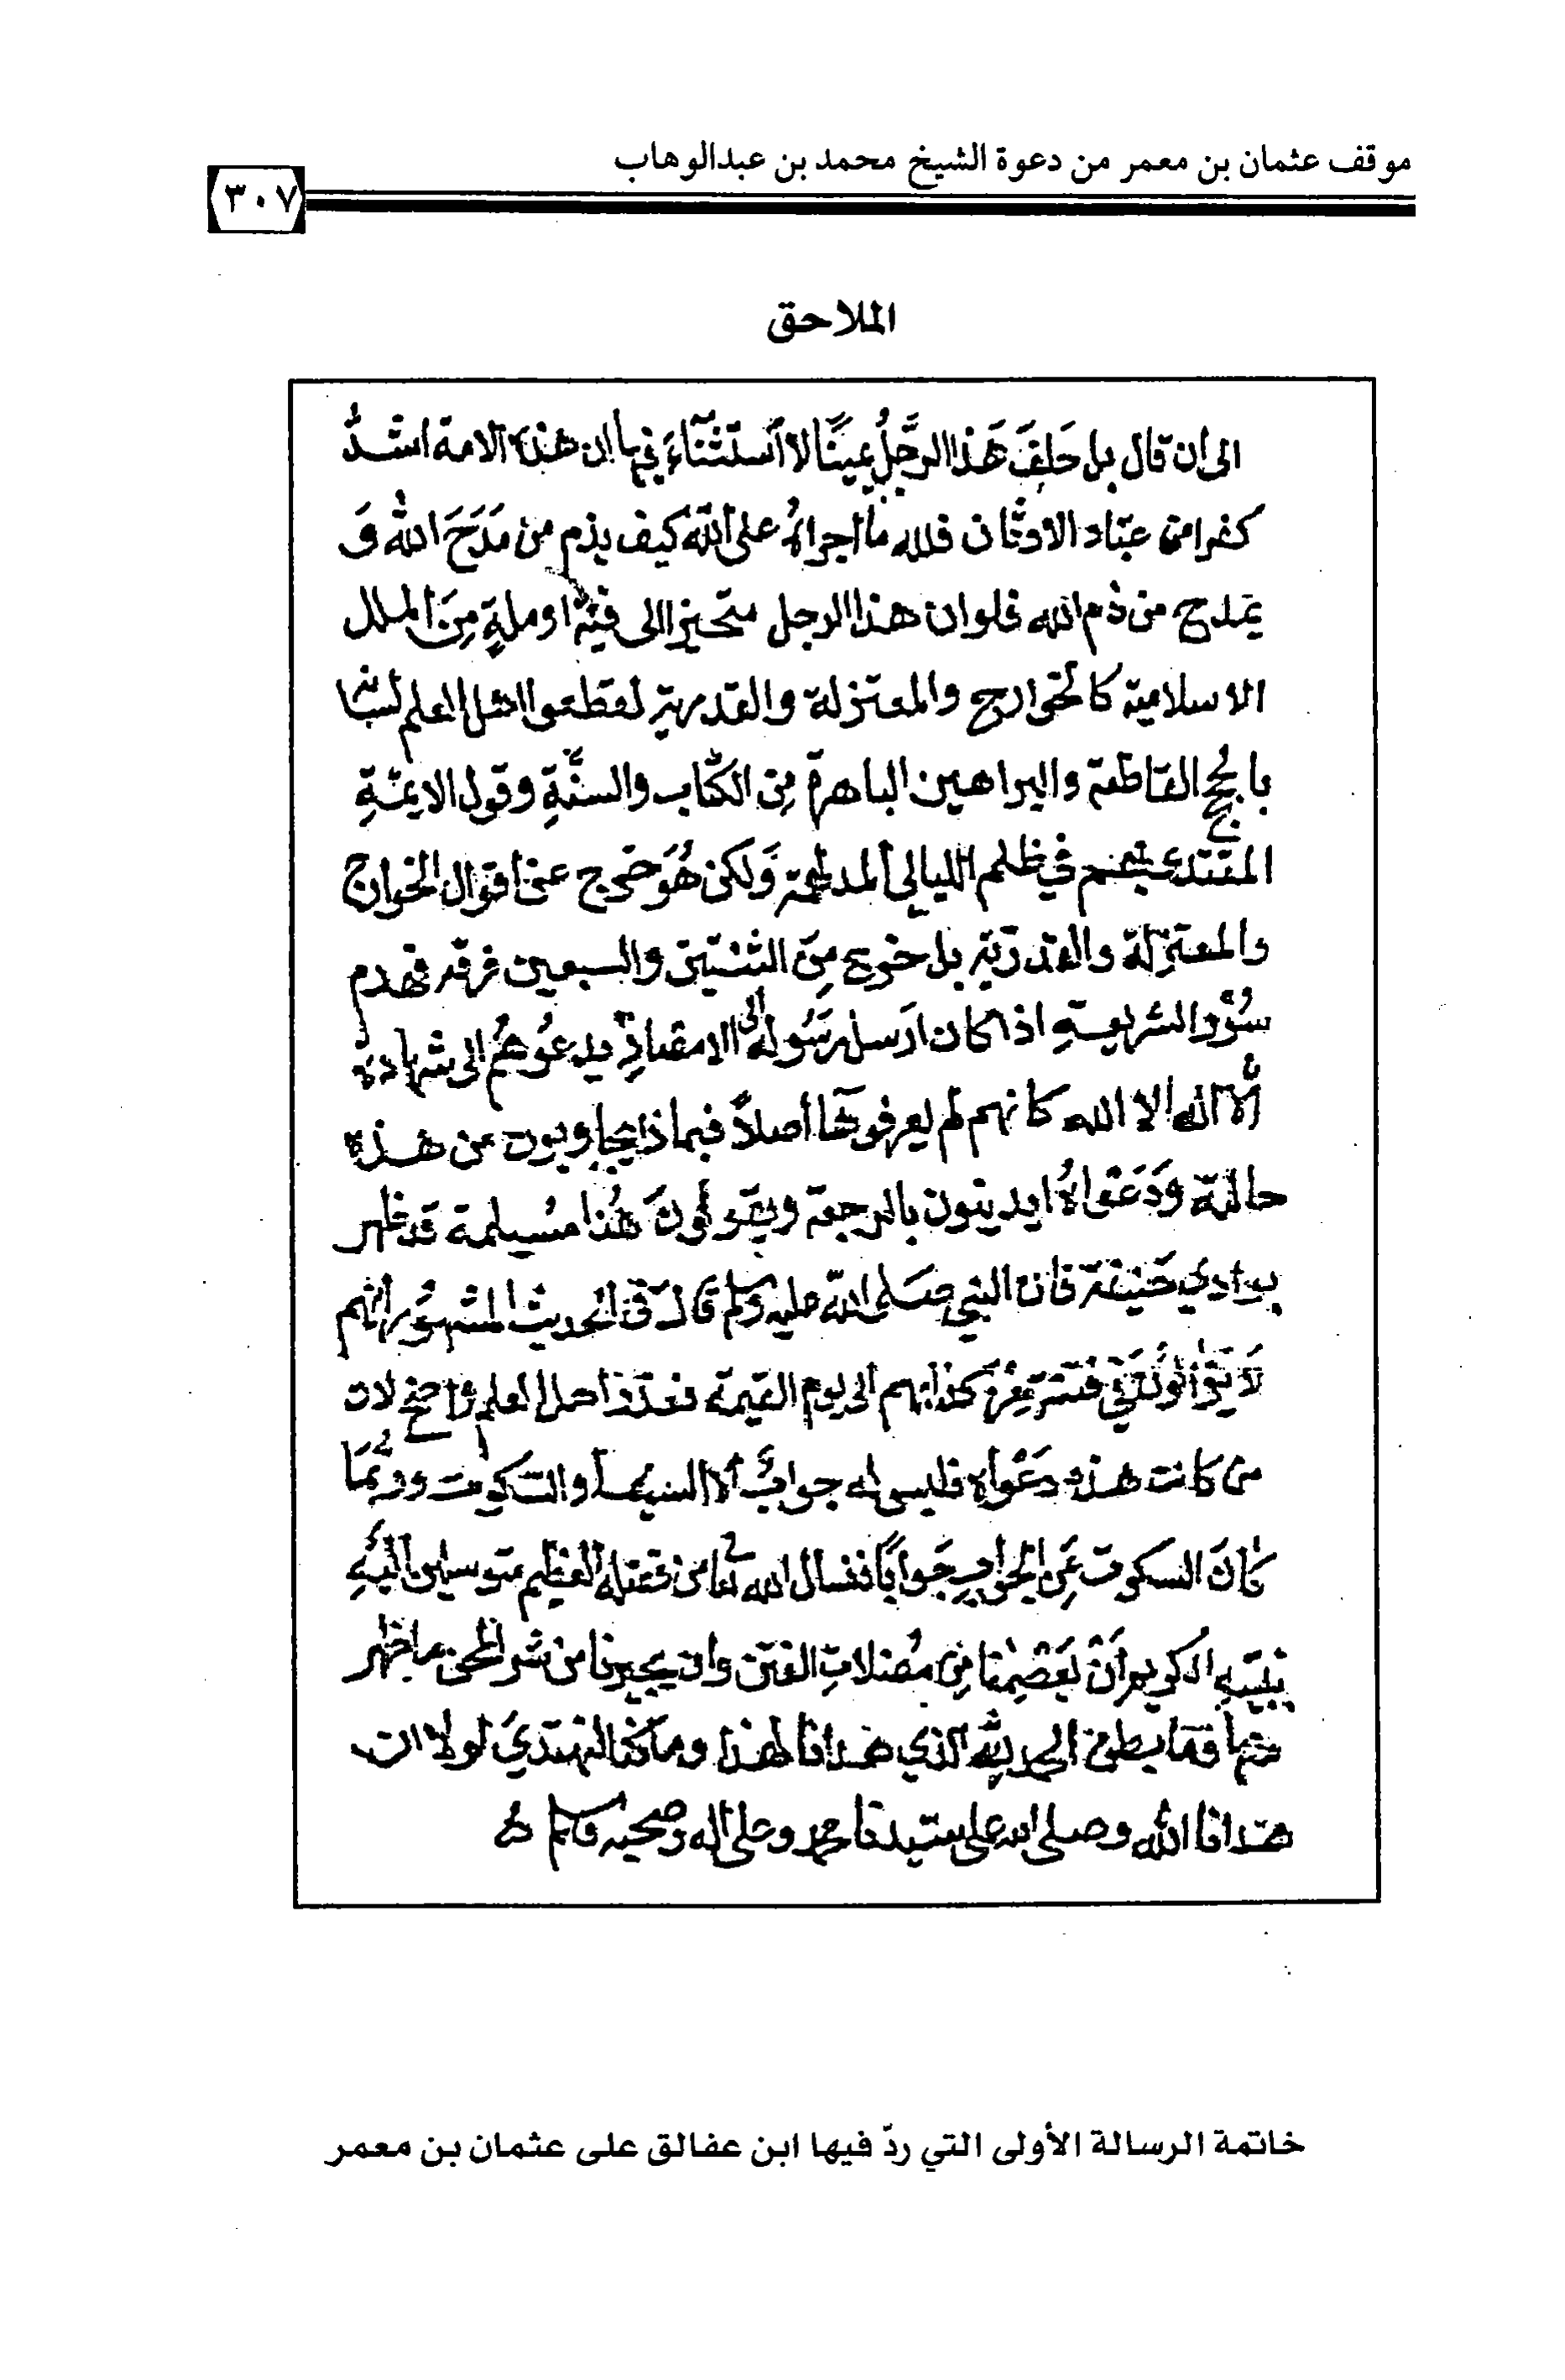 موقف عثمان بن معمر من دعوة الشيخ محمد بن عبدالوهاب
٣٠٧
الملاحق
الى ان قال بل حَلفَ هَذا الرَّجلُ يمينًا لا استثناءَ فيها ان هذه الامة اشدُّ
كفرا من عبّاد الاوثان فلله ما اجراهُ على اللهِ كيف يذم من مَدَحَ اللهُ وَ
يمدح من ذم الله فلو ان هذا الرجل متحيزا الى فيةٍ او ملةٍ مِنَ الملل
الاسلامية كالخوارج والمعتزلة والقدرية لقطعوا اهل العلم
بالحجج القاطعة والبراهين الباهرة مِن الكتاب والسنَّةِ وقول الايمّةِ
المقتدى بهم في ظلم الليالي المدلهمة وَلكن هُوَ خرج عن اقوال الخوارج
والمعتزلة والقدريّة بل خرج مِنَ الثنتين والسبعين فرقة فهدم
سُوْرَ الشريعةِ اذا كان ارسل رسُوله الى الامصارِ يدعُوهُم الى شهادة
أن لا اله الا الله كانهم لم يعرفوها أصلاً فبماذا يجاوبون من هذه
حالته وَدَعْواهُ ايدينون بالرجعة ويقولونَ هذا مسُيلمة قد ظهر
بوادي حَنيفة فان النبي صَلى اللّه عليه وسلم قال في الحديث المشهُور انهم
لَا يزالون في فتنة مِنْ كذابهم الى يوم القيمة فعذر اهل العلم واضح لان
من كانت هذه دعْواه فليس له جوابٌ الا السيف او السكوت وربّمَا
كانَ السكوت عَنِ الجوابِ جَوابًا فنسال الله تعالى من فضله العظيم متوسلين اليهِ
بنبيّهِ الكريم أنْ يَعْصِمَنا مِن مُضلاتِ الفتن وان يجيرنا من شر المحن ما ظهر
منها وما بطن الحمد للّه الذي هدانا لهذا وما كنا لنهتدىَ لولا ان
هدانا اللهُ وصلى الله على سيّدنا محمد وعلى اله وصحبه وسلم
خاتمة الرسالة الأولى التي ردّ فيها ابن عفالق على عثمان بن معمر